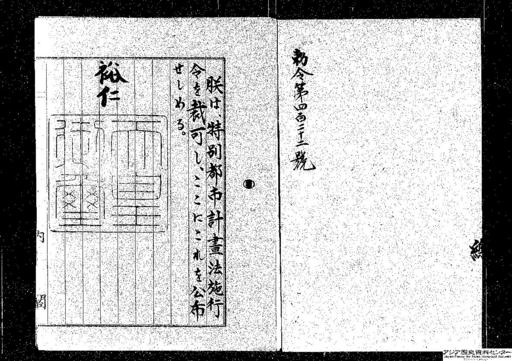 勅令第四百二十二號
朕は、特別都市計畫法施行
令を裁可し、ここにこれを公布
せしめる。
裕仁
天皇
御璽
内閣
アジア歴史資料センター